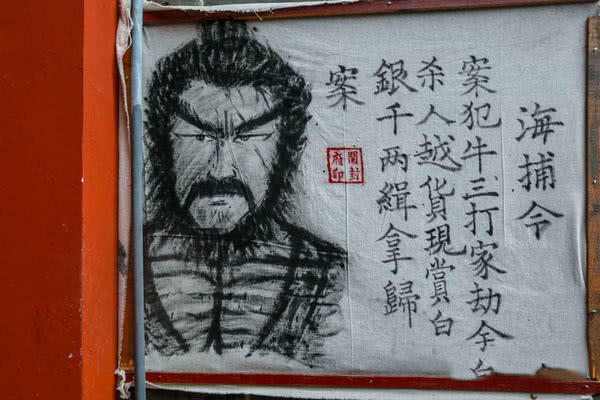 海捕令
案犯牛三打家劫舍
杀人越貨現賞白
銀千两緝拿歸
案
開封
府印